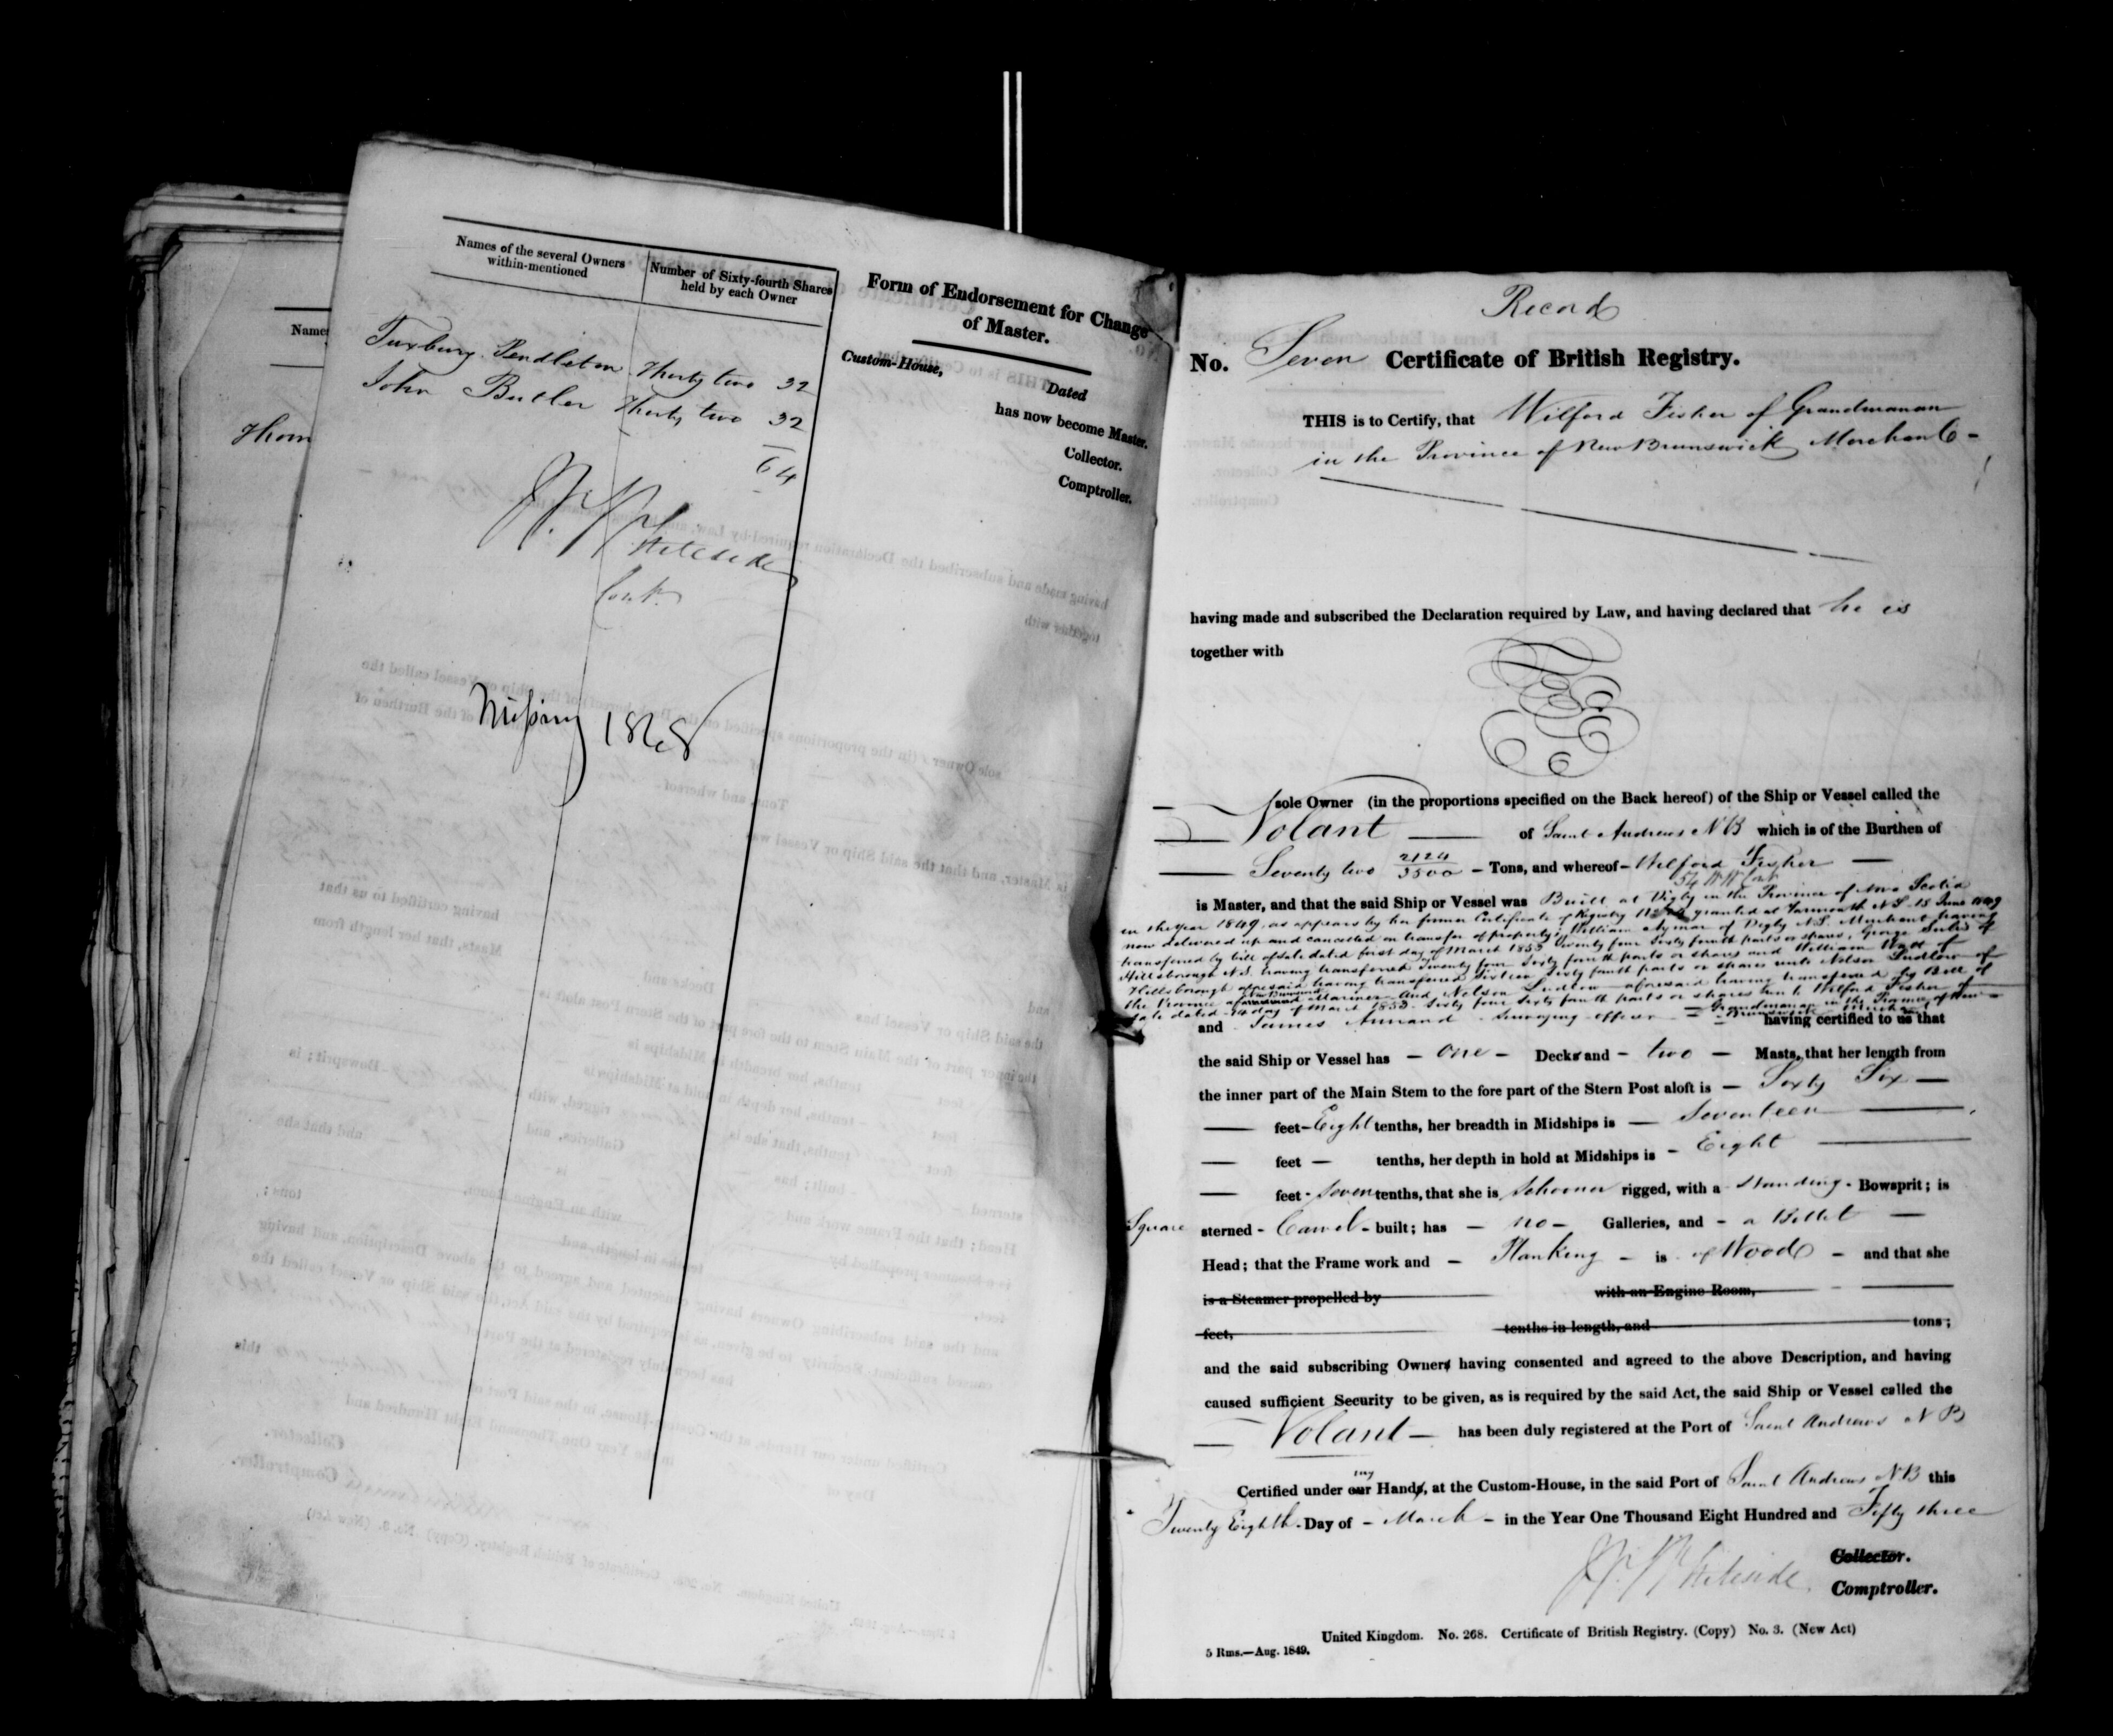 Names
Thom
Names of the several Owners
within-mentioned
Number of Sixty-fourth Shares
held by each Owner
Tuxbury Pendleton Thirty two 32
John Butler Thirty two 32
64
W. Whiteside
Cont.
Missing 1868
Form of Endorsement for Change
of Master.
Custom-House,
Dated
has now become Master.
Collector.
Comptroller.
Record
No. Seven Certificate of British Registry.
THIS is to Certify, that Wilford Fisher of Grandmanan
in the Province of New Brunswick Merchant
having made and subscribed the Declaration required by Law, and having declared that he is
together with
sole Owner (in the proportions specified on the Back hereof) of the Ship or Vessel called the
Volant of Saint Andrews NB which is of the Burthen of
Seventy two 2124/3500 Tons, and whereof Wilford Fisher
is Master, and that the said Ship or Vessel was Built at Digby in the Province of Nova Scotia
in the year 1849, as appears by her former Certificate of Registry granted at Yarmouth NS 15 June 1849
now delivered up and cancelled on transfer of property; William Aymar of Digby NS Merchant having
transferred by bill of sale dated first day of March 1853 Twenty four Sixty fourth parts or shares, George of
Hillsborough N.S. having transferred Twenty four Sixty fourth parts or shares and William of
Hillsborough aforesaid having transferred Sixteen Sixty fourth parts or shares unto Nelson Ludlow of
the Province of New Brunswick Mariner and Nelson Ludlow aforesaid having transferred by Bill of
sale dated day of March 1853 Sixty four Sixty fourth parts or shares unto Wilford Fisher of
Grandmanan in the Province of New Brunswick Merchant
and James Annand Surveying officer having certified to us that
the said Ship or Vessel has one Decks and two Masts, that her length from
the inner part of the Main Stem to the fore part of the Stern Post aloft is Sixty Six
feet Eight tenths, her breadth in Midships is Seventeen
feet tenths, her depth in hold at Midships is Eight
feet Seven tenths, that she is Schooner rigged, with a Standing Bowsprit; is
Square sterned Carvel built; has no Galleries, and a Billet
Head; that the Frame work and Planking is of Wood and that she
is a Steamer propelled by with an Engine Room,
feet, tenths in length, and tons;
and the said subscribing Owners having consented and agreed to the above Description, and having
caused sufficient Security to be given, as is required by the said Act, the said Ship or Vessel called the
Volant has been duly registered at the Port of Saint Andrews NB
Certified under our my Hands, at the Custom-House, in the said Port of Saint Andrews NB this
Twenty Eighth Day of March in the Year One Thousand Eight Hundred and Fifty three
W. Whiteside
Collector.
Comptroller.
United Kingdom. No. 268. Certificate of British Registry. (Copy) No. 3. (New Act)
5 Rms.—Aug. 1849.